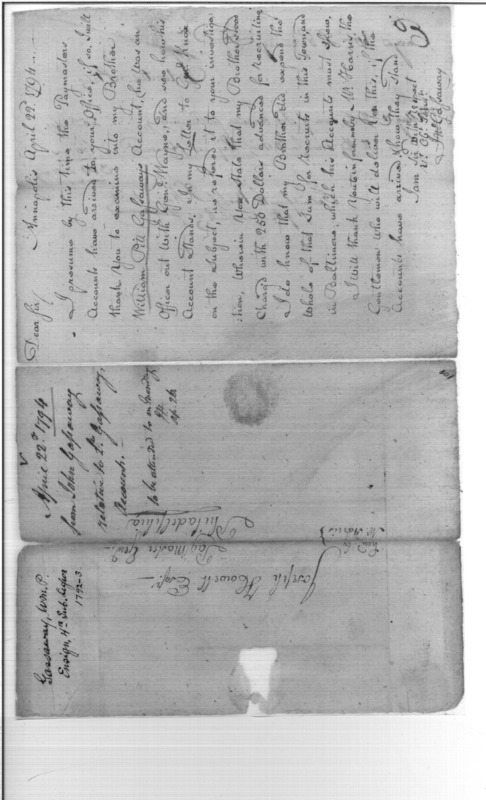 Annapolis April 22d 1794
Dear Sir
I presume by this time the Paymasters
Accounts have arrived to your Office, if so, I will
thank You to examine into my Brother
William Pitt Gassaways Account, (he was an
Officer out with Genl Wayne, and see how his
Account Stands. In my Letter to Genl Knox
on the Subject, he refered it to your investiga-
tion, Wherein You State that my Brother stood
Charged with 250 Dollars advanced for Recruiting
I do know that my Brother did expend the
Whole of that Sum for Recruits in this Town, and
in Baltimore, which his Accounts must Show,
I will thank You to inform by Mr Harris the
Gentleman Who will deliver You this, if the
Accounts have arrived & how they Stand
I am Sir With Respect
Yr Obt Servt
Jno Gassaway
April 22d 1794
from John Gassaway
relative to Lt Gassaway,
Account.
to be attended to on Monday
Ap. 28
Joseph Howell Esqr
Pay Master Genl
Philadelphia
Mr Harris
Gassaway, Wm. P.
Ensign, 4th Sub Legion
1792-3